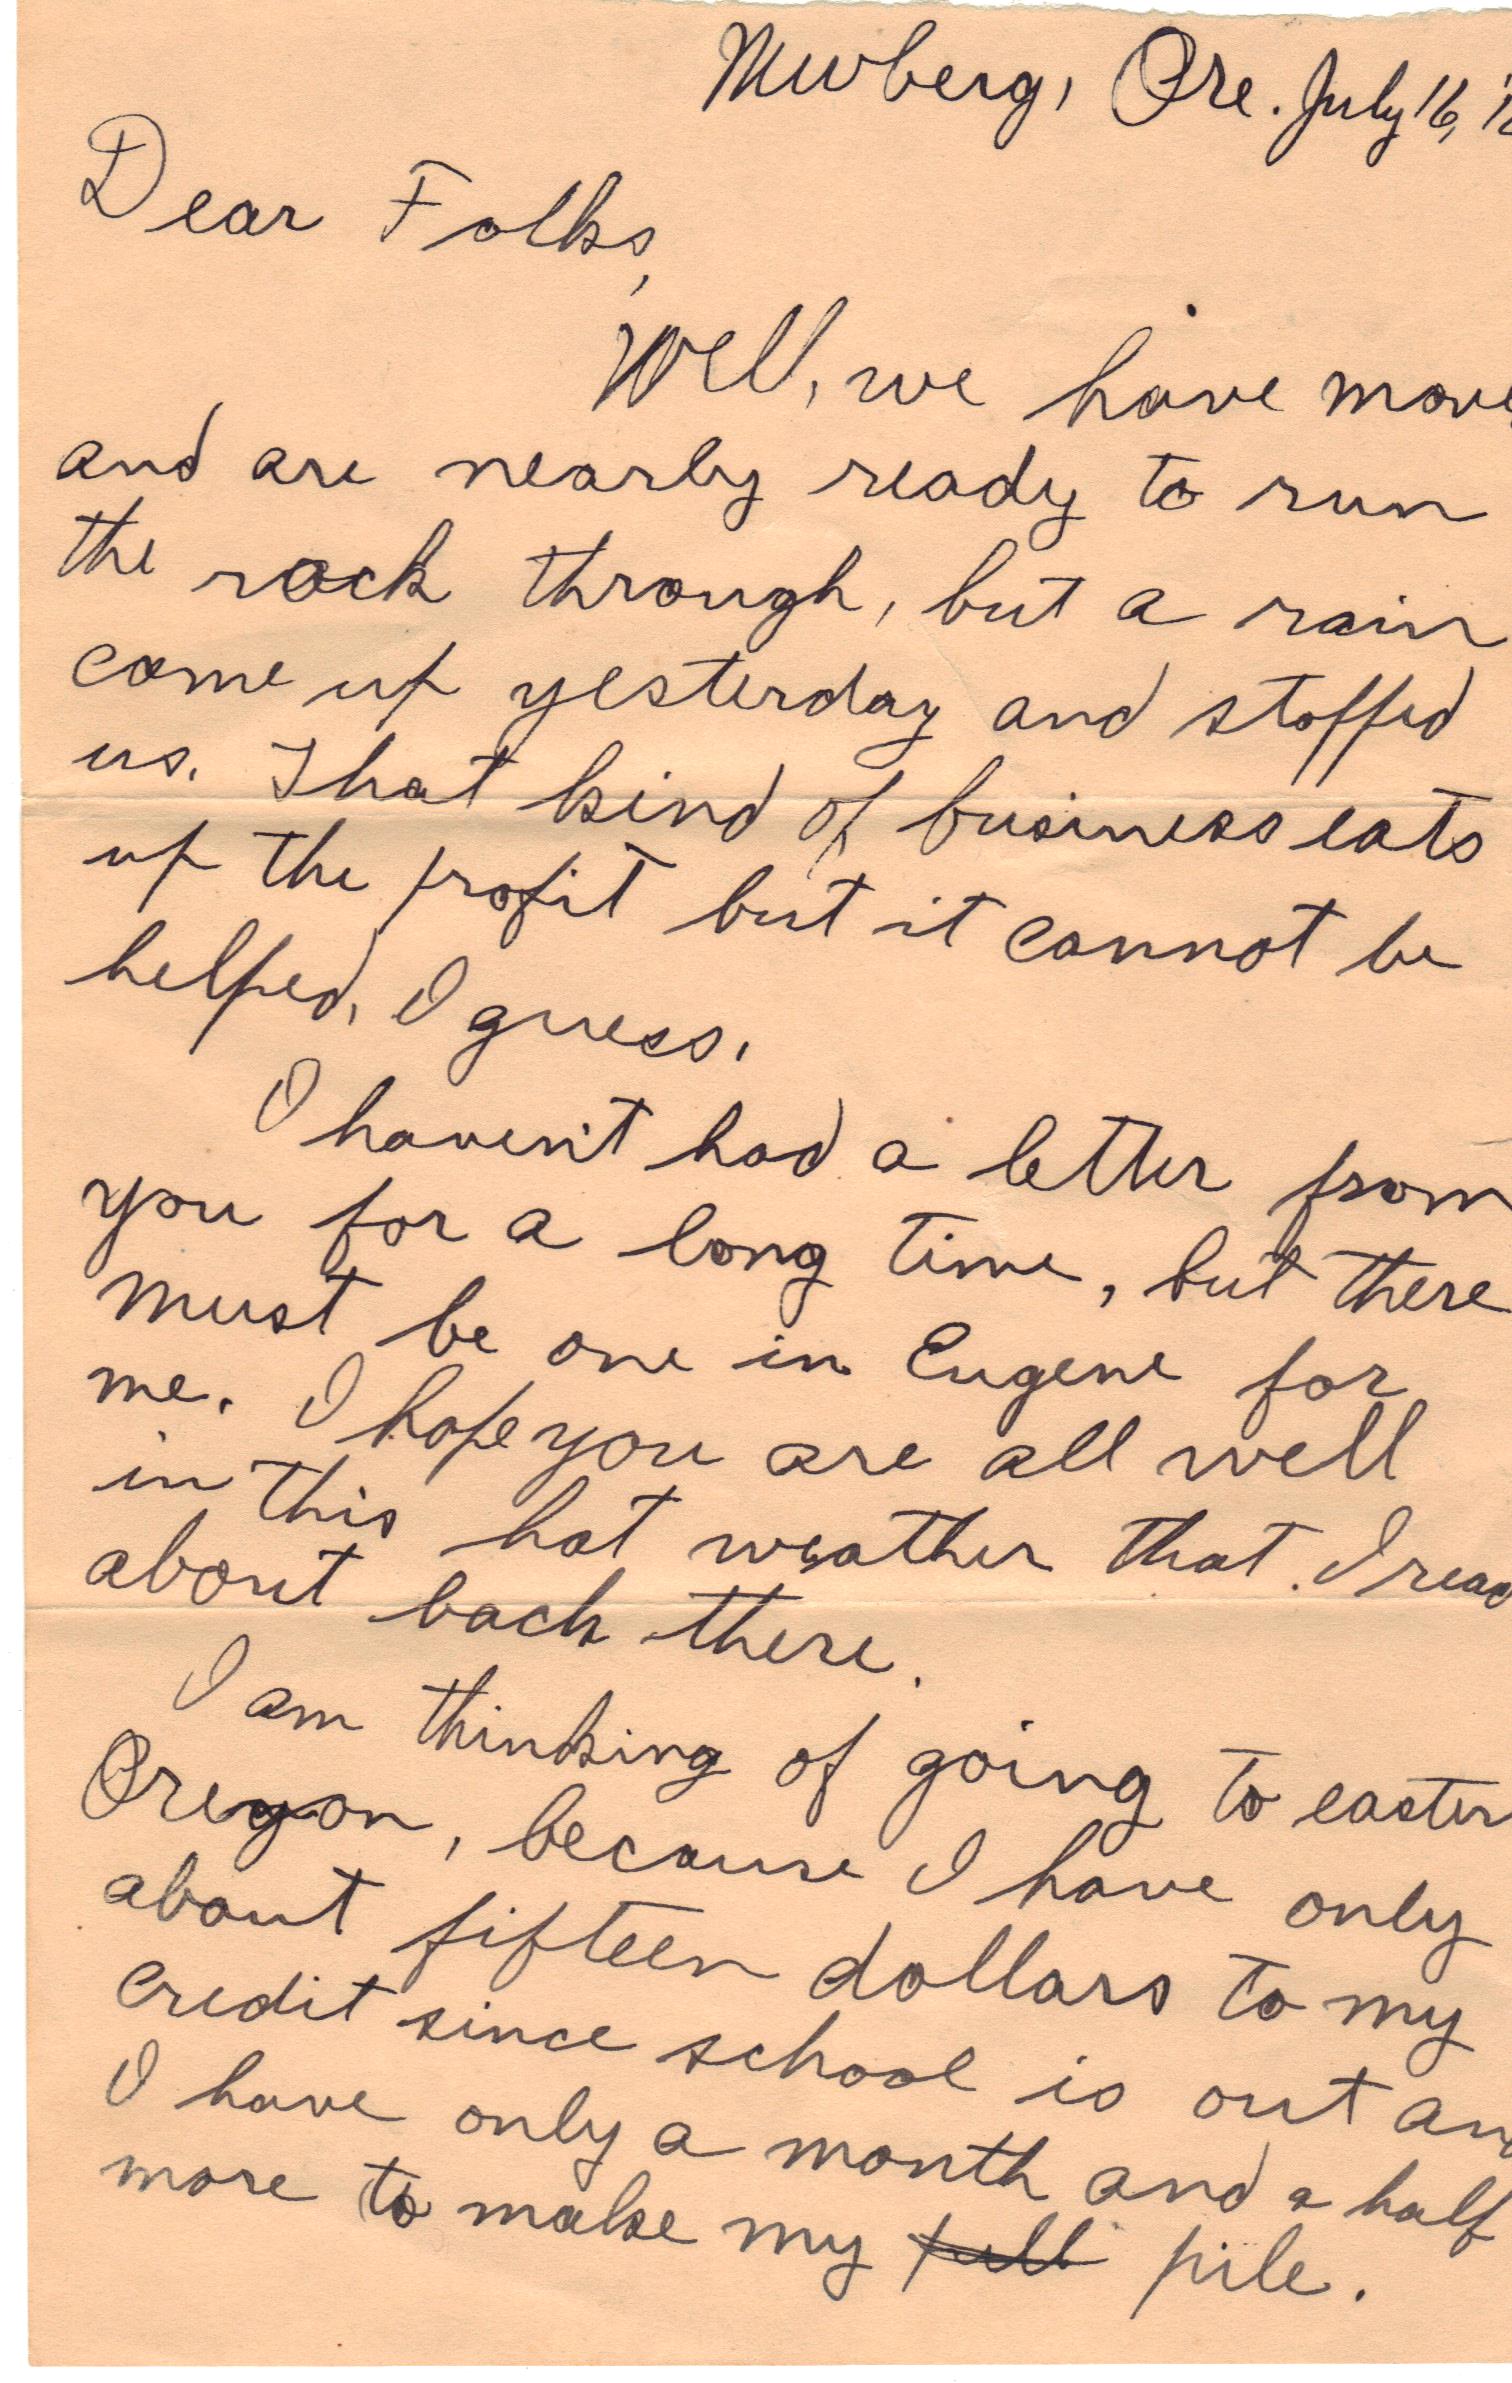 Newberg, Ore. July 16, '
Dear Folks,
Well, we have move
and are nearly ready to run
the rock through, but a rain
come up yesterday and stopped
us. That kind of business eats
up the profit but it cannot be
helped, I guess.
I haven't had a letter from
you for a long time, but there
must be one in Eugene for
me. I hope you are all well
in this hot weather that I read
about back there.
I am thinking of going to eastern
Oregon, because I have only
about fifteen dollars to my
credit since school is out an
I have only a month and a half
more to make my pile.